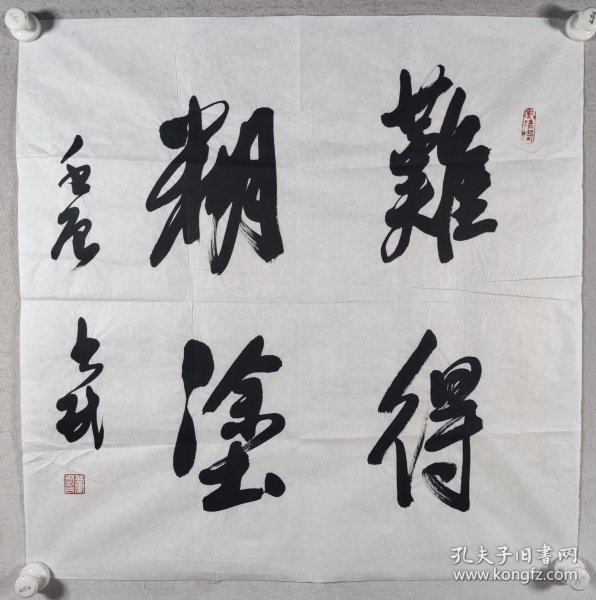 難得
糊塗
壬辰
大武
孔夫子旧书网
www.kongfz.com